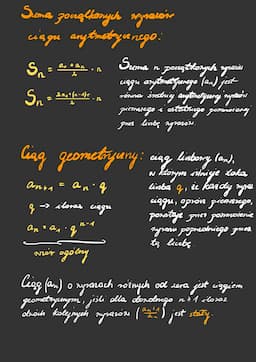 Suma początkowych wyrazów
ciągu arytmetycznego:
Sn = a1 + an / 2 · n
Suma n początkowych wyrazów
ciągu arytmetycznego (an) jest
równa średniej arytmetycznej wyrazów
pierwszego i ostatniego pomnożonej
przez liczbę wyrazów
Sn = 2a1 + (n-1)r / 2 · n
Ciąg geometryczny:
ciąg liczbowy (an),
w którym istnieje taka
liczba q, że każdy wyraz
ciągu, oprócz pierwszego,
powstaje przez pomnożenie
wyrazu poprzedniego przez
tę liczbę
an+1 = an · q
q → iloraz ciągu
an = a1 · q^n-1
wzór ogólny
Ciąg (an) o wyrazach różnych od zera jest ciągiem
geometrycznym, jeśli dla dowolnego n ≥ 1 iloraz
dwóch kolejnych wyrazów (an+1 / an) jest stały.